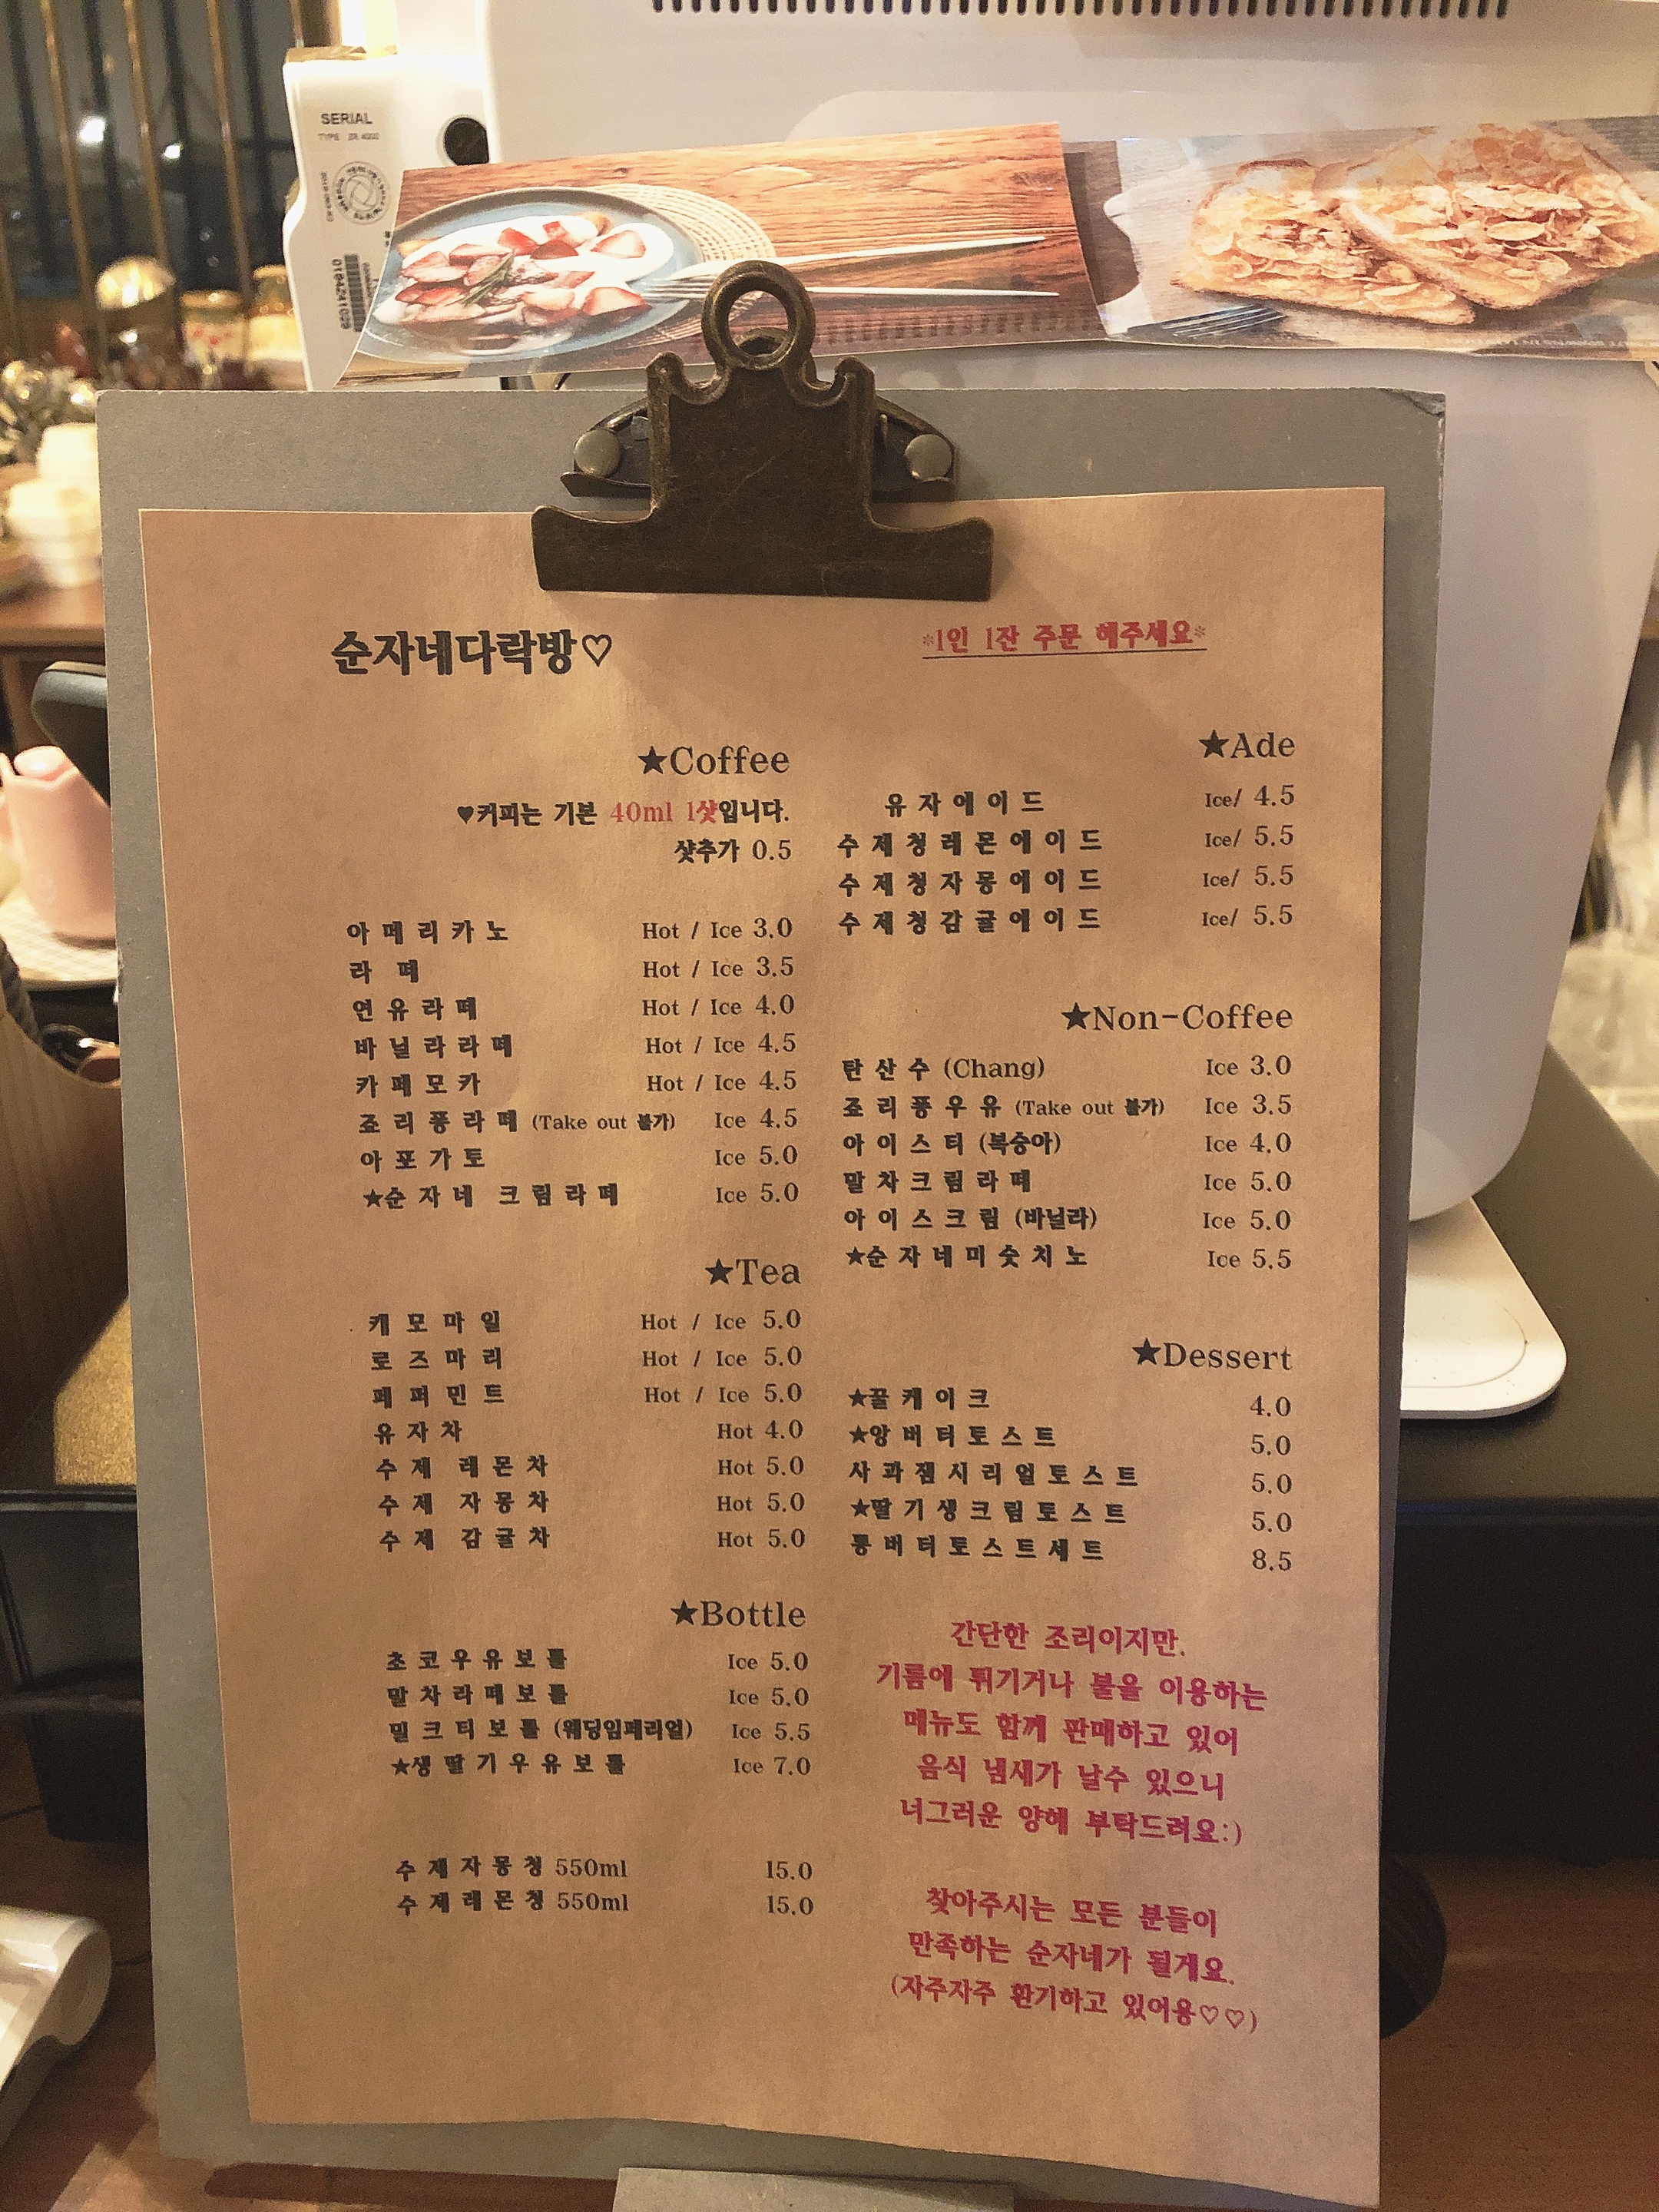 SERIAL
순자네다락방♡
*1인 1잔 주문 해주세요*
★Coffee
♥커피는 기본 40ml 1샷입니다.
샷추가 0.5
아메리카노 Hot / Ice 3.0
라떼 Hot / Ice 3.5
연유라떼 Hot / Ice 4.0
바닐라라떼 Hot / Ice 4.5
카페모카 Hot / Ice 4.5
죠리퐁라떼 (Take out 불가) Ice 4.5
아포가토 Ice 5.0
★순자네 크림라떼 Ice 5.0
★Tea
캐모마일 Hot / Ice 5.0
로즈마리 Hot / Ice 5.0
페퍼민트 Hot / Ice 5.0
유자차 Hot 4.0
수제 레몬차 Hot 5.0
수제 자몽차 Hot 5.0
수제 감귤차 Hot 5.0
★Bottle
초코우유보틀 Ice 5.0
말차라떼보틀 Ice 5.0
밀크티보틀 (웨딩임페리얼) Ice 5.5
★생딸기우유보틀 Ice 7.0
수제자몽청 550ml 15.0
수제레몬청 550ml 15.0
★Ade
유자에이드 Ice/ 4.5
수제청레몬에이드 Ice/ 5.5
수제청자몽에이드 Ice/ 5.5
수제청감귤에이드 Ice/ 5.5
★Non-Coffee
탄산수 (Chang) Ice 3.0
죠리퐁우유 (Take out 불가) Ice 3.5
아이스티 (복숭아) Ice 4.0
말차크림라떼 Ice 5.0
아이스크림 (바닐라) Ice 5.0
★순자네미숫치노 Ice 5.5
★Dessert
★꿀케이크 4.0
★앙버터토스트 5.0
사과잼시리얼토스트 5.0
★딸기생크림토스트 5.0
통버터토스트세트 8.5
간단한 조리이지만.
기름에 튀기거나 불을 이용하는
메뉴도 함께 판매하고 있어
음식 냄새가 날수 있으니
너그러운 양해 부탁드려요:)
찾아주시는 모든 분들이
만족하는 순자네가 될게요.
(자주자주 환기하고 있어용♡♡)